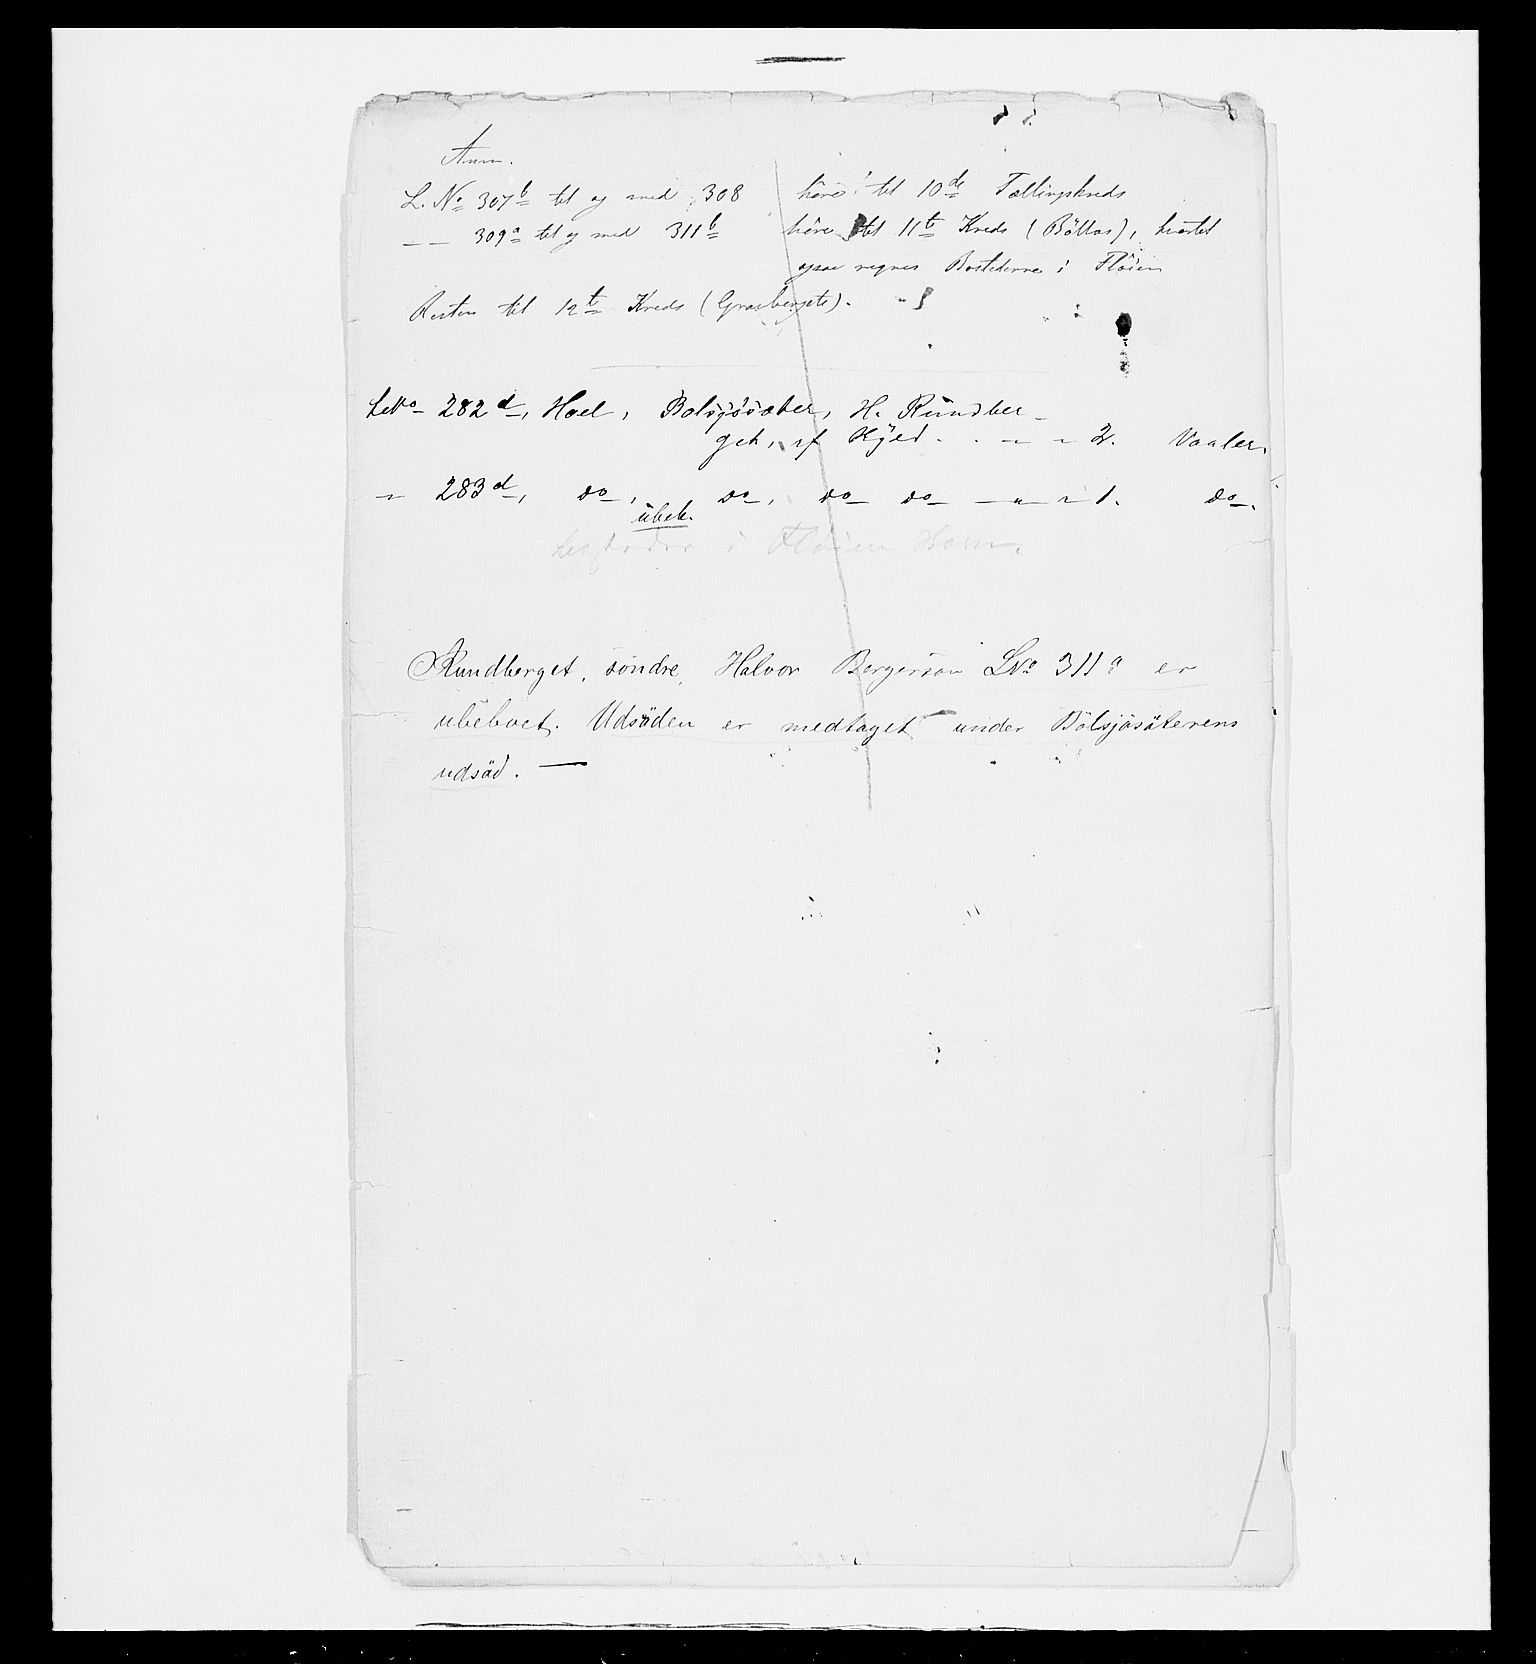 Anm.
L. No 307b til og med 308 høre til 10de Tællingskreds
— — 309a til og med 311b høre til 11te Kreds (Böltas), hvortil
ogsaa regnes Bostederne i Flöien
Resten til 12te Kreds (Graaberget).
LNo 282d, Hoel, Bolsjösæter, H. Rundber-
get, af Kjed. . - - - 2. Vaaler.
-"- 283d, do, do, do do — " - 1. do.
ubeb.
i Flöien
Rundberget, söndre, Halvor Bergersen LNo 311a er
ubeboet. Udsäden er medtaget under Bölsjösäterens
udsäd. —